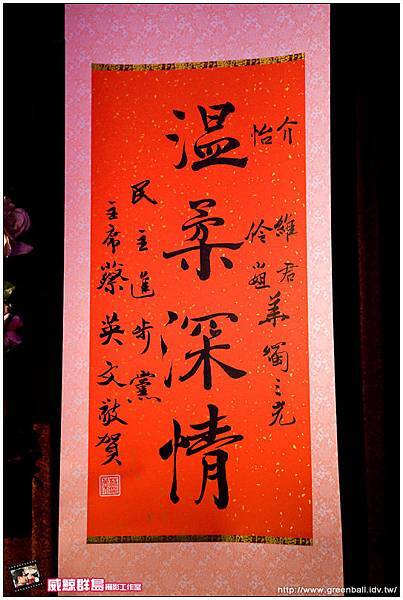 介維君
怡伶小姐
華燭之光
温柔深情
民主進步黨
主席蔡英文敬賀
威鯨群島攝影工作室
http://www.greenball.idv.tw/